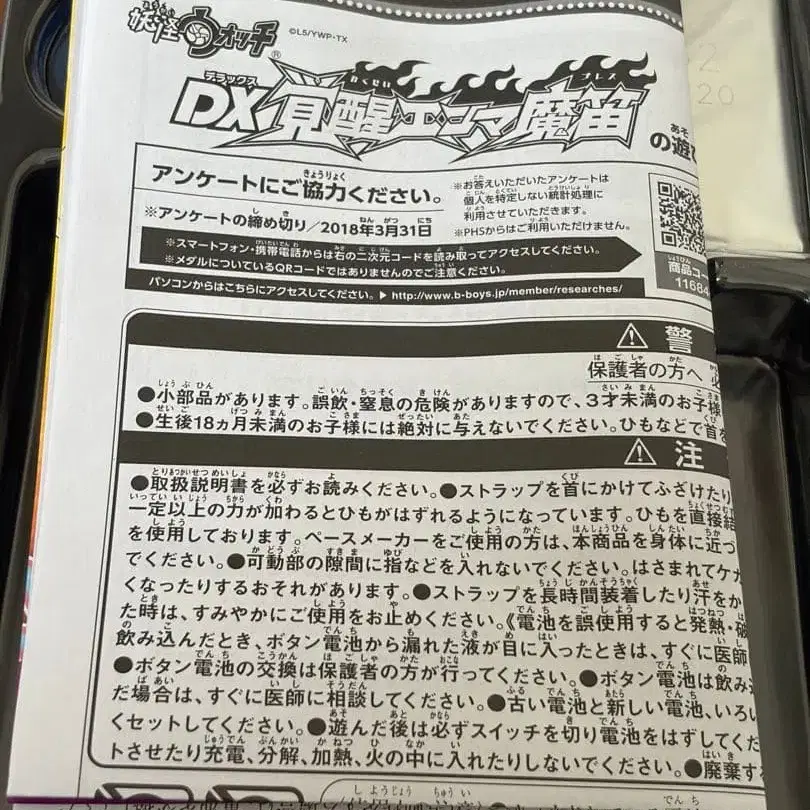 妖怪ウォッチ
©L5/YWP・TX
DX覚醒エンマ魔笛の遊び
アンケートにご協力ください。
※アンケートの締め切り／2018年3月31日
※お答えいただいたアンケートは
個人を特定しない統計処理に
利用させていただきます。
※PHSからはご利用いただけません。
※スマートフォン・携帯電話からは右の二次元コードを読み取ってアクセスしてください。
※メダルについているQRコードではありませんのでご注意ください。
パソコンからはこちらにアクセスしてください。▶http://www.b-boys.jp/member/researches/
商品コー
11684
警
保護者の方へ 必
●小部品があります。誤飲・窒息の危険がありますので、3才未満のお子様
●生後18ヵ月未満のお子様には絶対に与えないでください。ひもなどで首を
注
●取扱説明書を必ずお読みください。●ストラップを首にかけてふざけたり
一定以上の力が加わるとひもがはずれるようになっています。ひもを直接結
を使用しております。ペースメーカーをご使用の方は、本商品を身体に近づ
でください。●可動部の隙間に指などを入れないでください。はさまれてケガ
くなったりするおそれがあります。●ストラップを長時間装着したり汗をか
た時は、すみやかにご使用をお止めください。《電池を誤使用すると発熱・破
飲み込んだとき、ボタン電池から漏れた液が目に入ったときは、すぐに医師
●ボタン電池の交換は保護者の方が行ってください。●ボタン電池は飲み込
だ場合は、すぐに医師に相談してください。●古い電池と新しい電池、いろい
くセットしてください。●遊んだ後は必ずスイッチを切り電池をはずしてくだ
トさせたり充電、分解、加熱、火の中に入れたりしないでください。●廃棄す